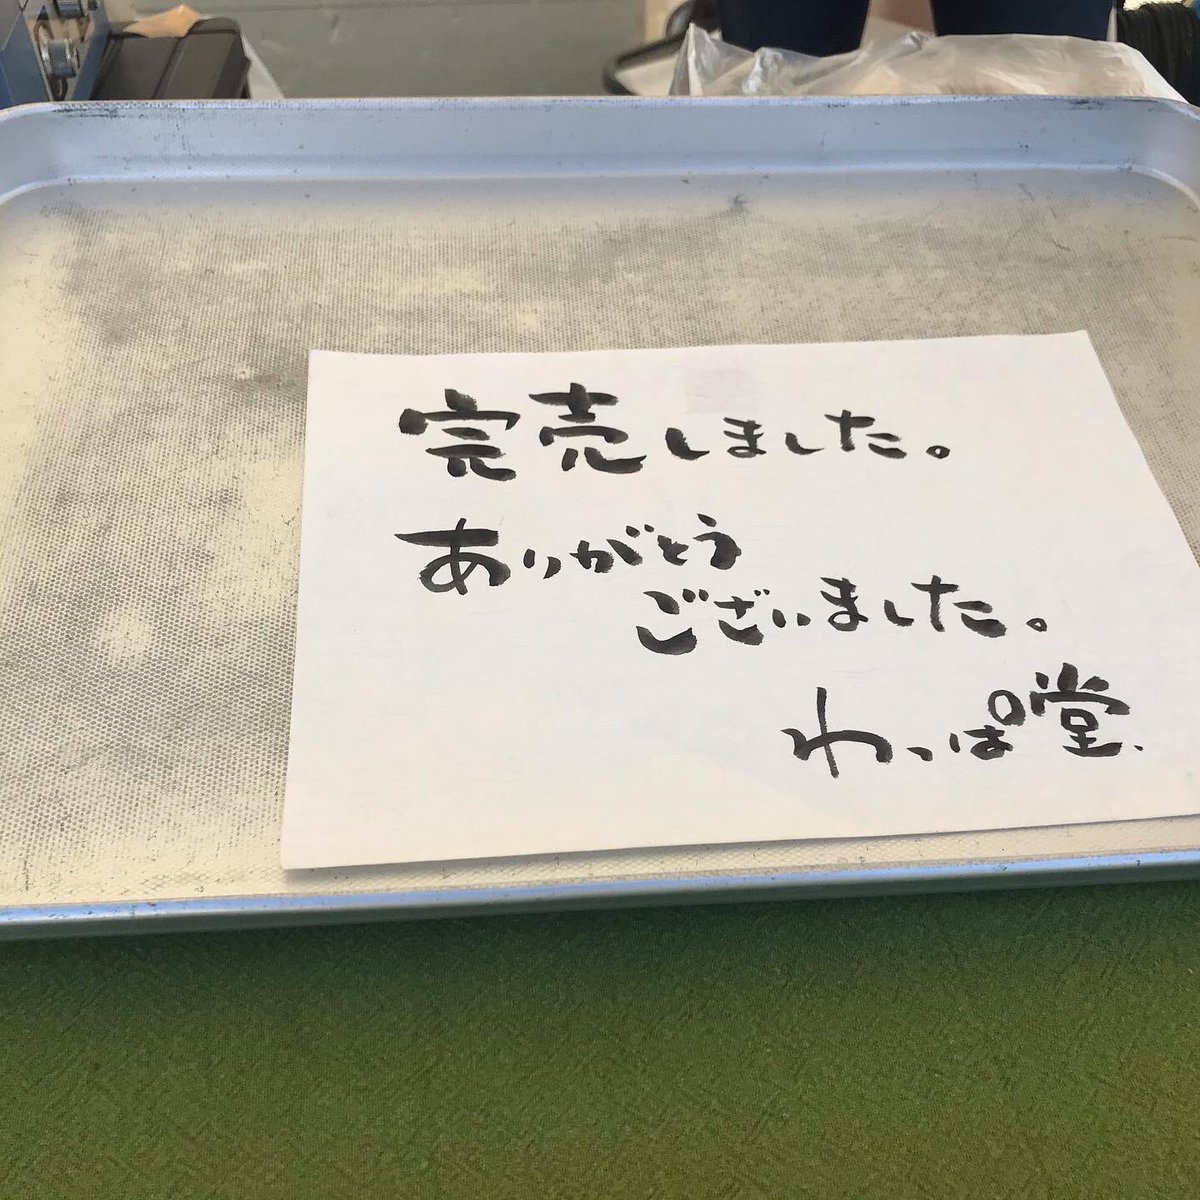 完売しました。
ありがとう
ございました。
わっぱ堂、